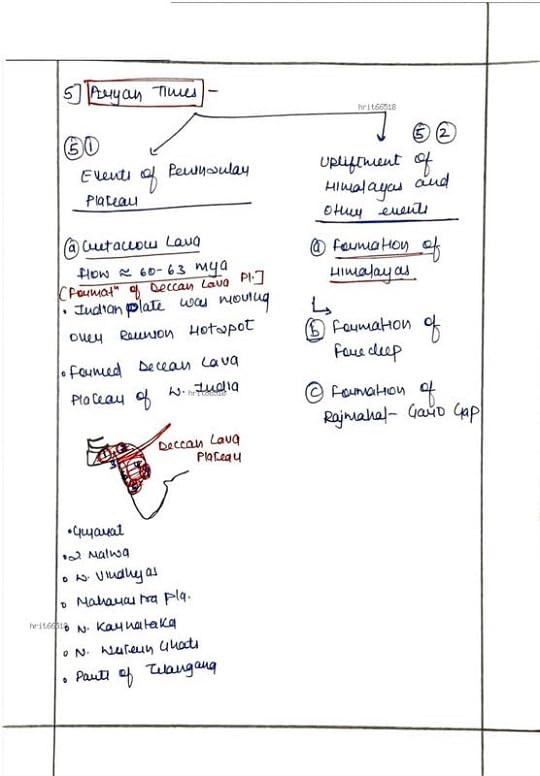 5] Aryan Times -
hrit66518
5 1
Events of Peninsular
Plateau
a Cretaceous Lava
flow ≈ 60-63 mya
[Formatn of Deccan Lava Pl.]
• Indian plate was moving
over Reunion Hotspot
• Formed Deccan Lava
Plateau of W. India
hrit66518
1 2
3 4
5
Deccan Lava
Plateau
• Gujarat
• 2 Malwa
• W. Vindhyas
• Maharastra pla.
hrit66518
• N. Karnataka
• N. Western Ghats
• Parts of Telangana
5 2
Upliftment of
Himalayas and
Other events
a Formation of
Himalayas
b Formation of
Foredeep
c Formation of
Rajmahal- Garo Gap